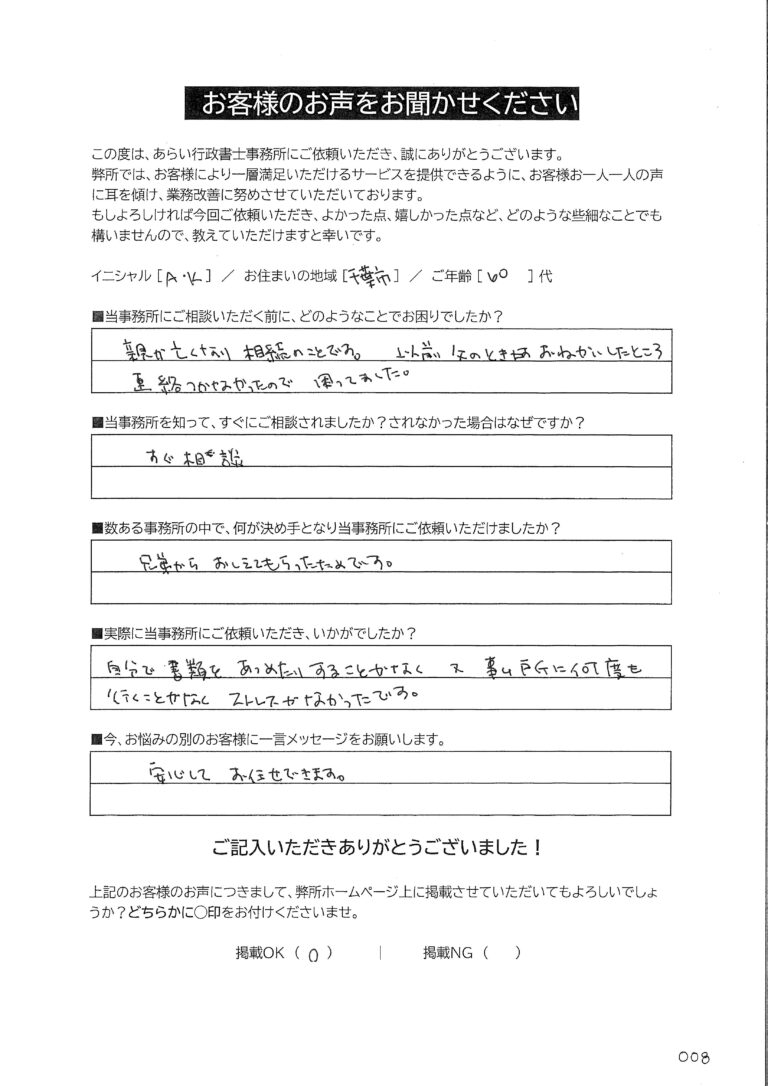 お客様のお声をお聞かせください
この度は、あらい行政書士事務所にご依頼いただき、誠にありがとうございます。
弊所では、お客様により一層満足いただけるサービスを提供できるように、お客様お一人一人の声
に耳を傾け、業務改善に努めさせていただいております。
もしよろしければ今回ご依頼いただき、よかった点、嬉しかった点など、どのような些細なことでも
構いませんので、教えていただけますと幸いです。
イニシャル [ A・K ] ／ お住まいの地域 [ 千葉市 ] ／ ご年齢 [ 60 ] 代
■当事務所にご相談いただく前に、どのようなことでお困りでしたか？
親が亡くなり 相続のことです。 以前 父のときは おねがいしたところ
連絡つかなかったので 困ってました。
■当事務所を知って、すぐにご相談されましたか？されなかった場合はなぜですか？
すぐ相談
■数ある事務所の中で、何が決め手となり当事務所にご依頼いただけましたか？
兄弟から おしえてもらったためです。
■実際に当事務所にご依頼いただき、いかがでしたか？
自分で 書類を あつめたりすることがなく 又 事ム所に何度も
行くことがなく ストレスがなかったです。
■今、お悩みの別のお客様に一言メッセージをお願いします。
安心して お任せできます。
ご記入いただきありがとうございました！
上記のお客様のお声につきまして、弊所ホームページ上に掲載させていただいてもよろしいでしょ
うか？どちらかに〇印をお付けくださいませ。
掲載OK （ 〇 ） ｜ 掲載NG （ ）
008